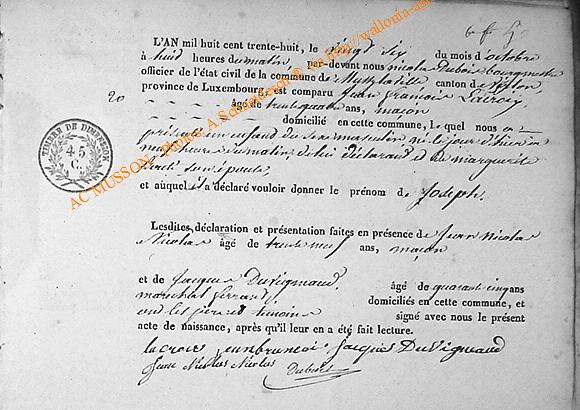 L'AN mil huit cent trente-huit, le vingt six du mois d'octobre
à huit heures du matin, par-devant nous nicolas Dubois bourgmestre
officier de l'état civil de la commune de canton de
province de Luxembourg est comparu Jean François Lacroix
20
âgé de trente quatre ans, maçon
domicilié en cette commune, le quel nous a
présenté un enfant de sexe masculin né le jour d'hier à
neuf heures du matin, de lui déclarant et de marguerite
son épouse
et auquel il a déclaré vouloir donner le prénom de Joseph.
Lesdites déclaration et présentation faites en présence de Jean Nicolas
Nicolas âgé de trente neuf ans, maçon
et de Jacques Duvigneaud âgé de quarante cinq ans
marechal ferrant domiciliés en cette commune, et
ont les père et temoins signé avec nous le présent
acte de naissance, après qu'il leur en a été fait lecture.
lacroix jean françois Jacques DuVigneaud
Jean Nicolas Nicolas Dubois
TIMBRE DE DIMENSION
45
C.
AC MUSSON - Photos A.Schmickrath ® via http://wallonia-as